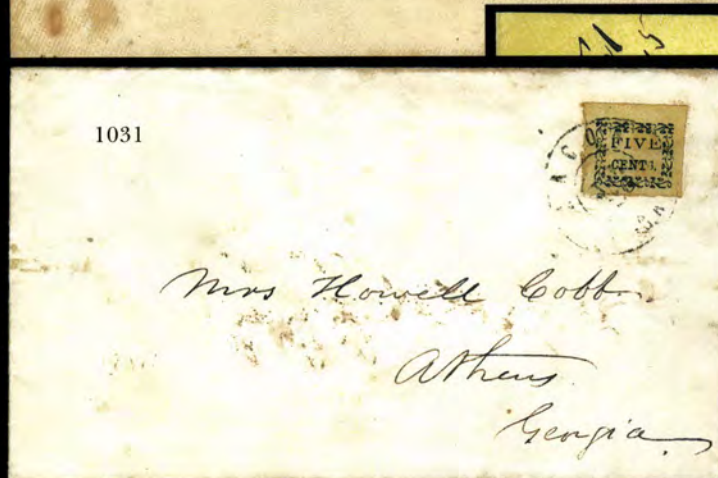 1031
FIVE
CENTS.
Mrs Howell Cobb
Athens
Georgia